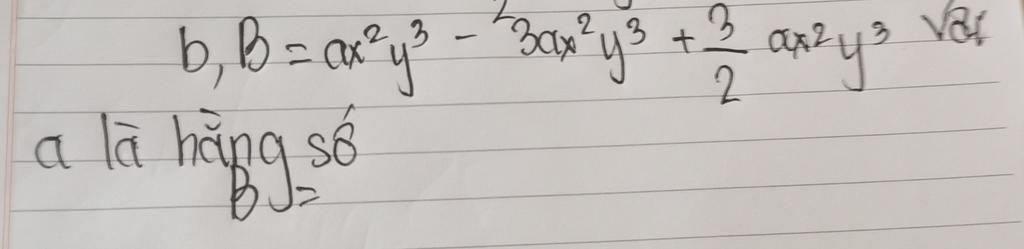 b, B = ax²y³ - 3ax²y³ + 3/2 ax²y³ với
a là hằng số
B =